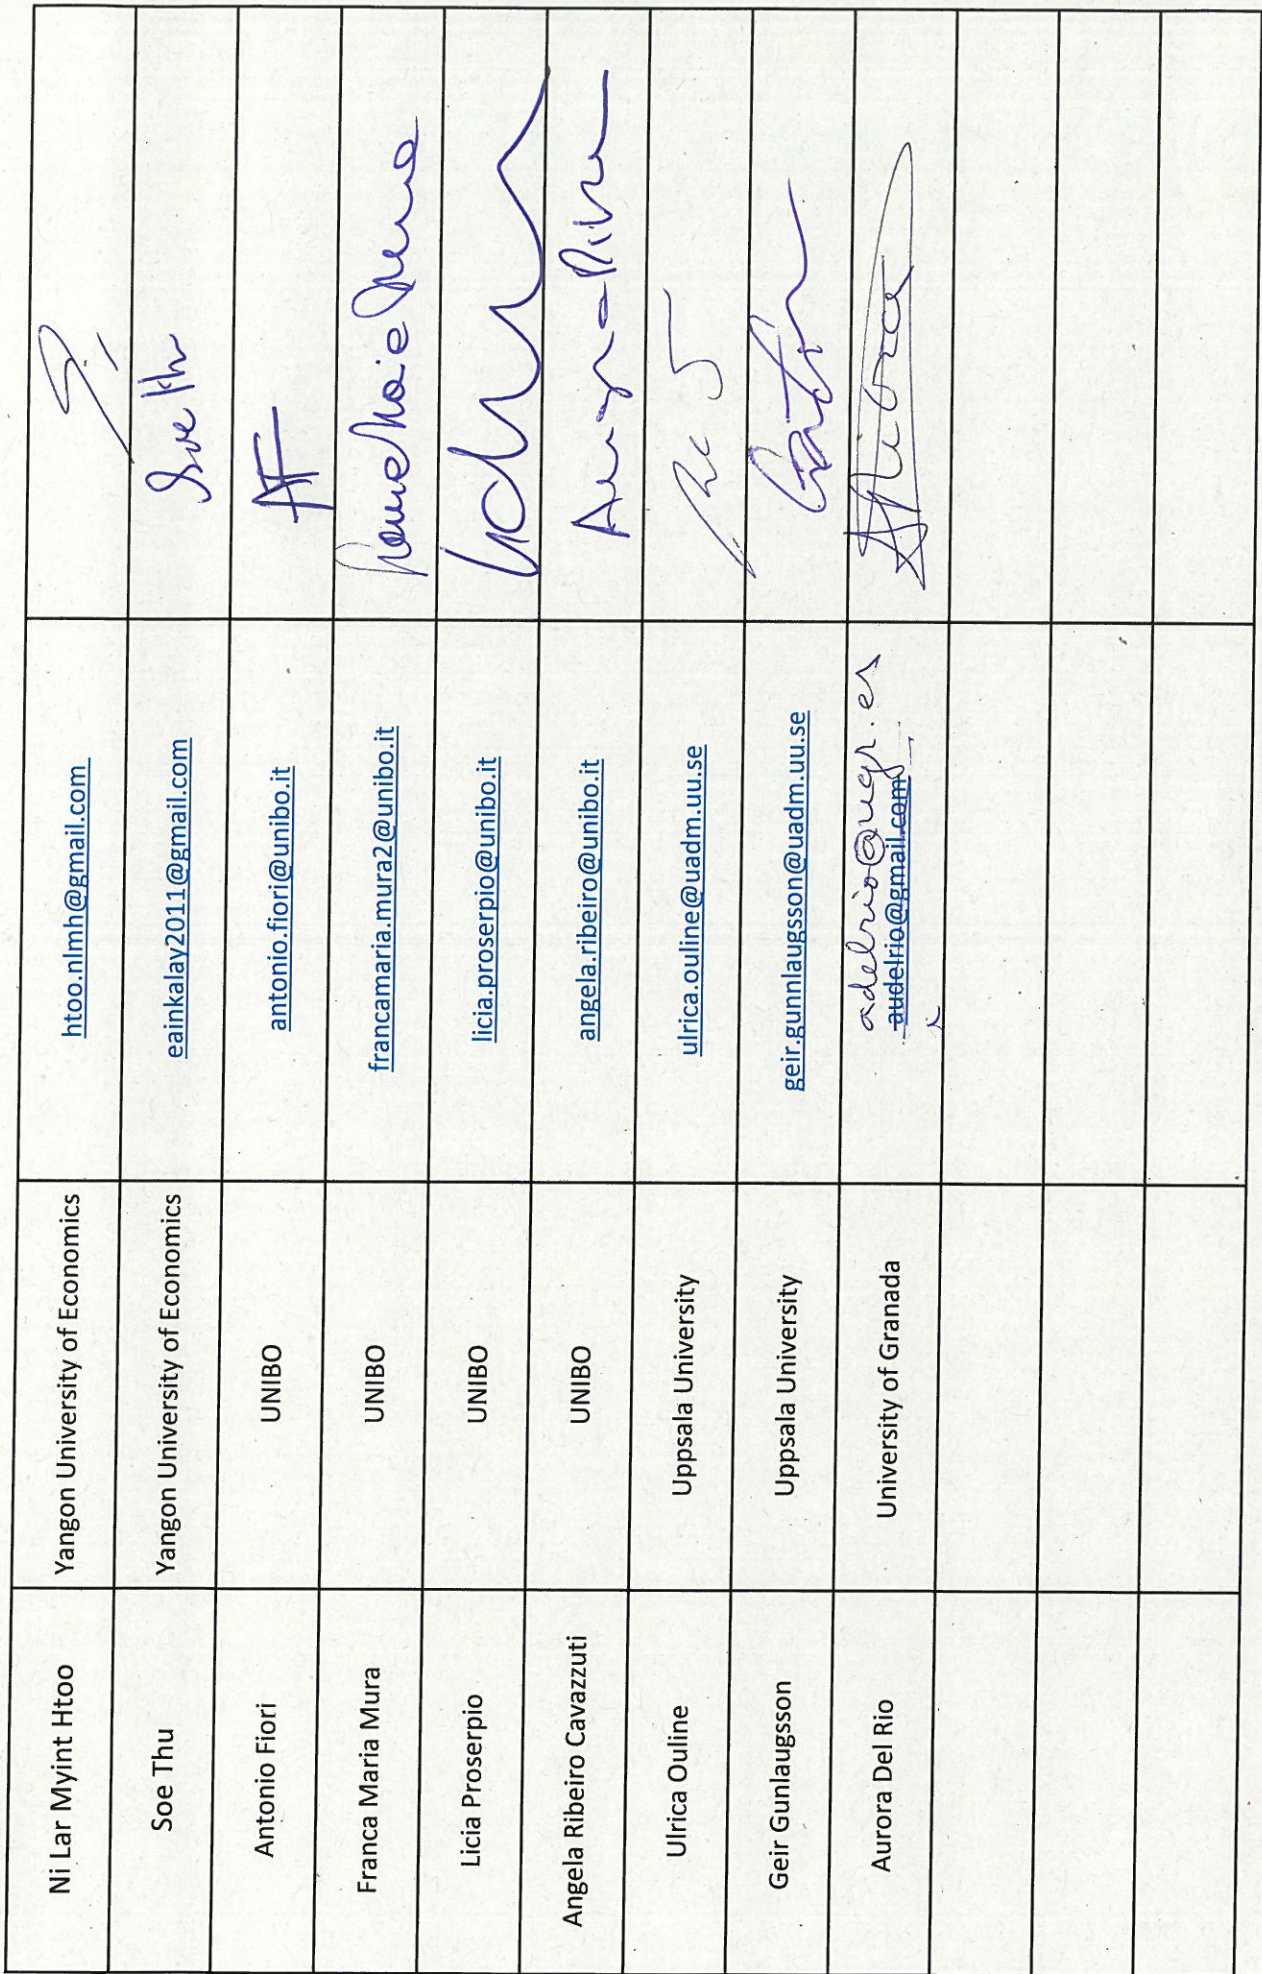 Ni Lar Myint Htoo Yangon University of Economics htoo.nlmh@gmail.com
Soe Thu Yangon University of Economics eainkalay2011@gmail.com Soe Thu
Antonio Fiori UNIBO antonio.fiori@unibo.it AF
Franca Maria Mura UNIBO francamaria.mura2@unibo.it
Licia Proserpio UNIBO licia.proserpio@unibo.it
Angela Ribeiro Cavazzuti UNIBO angela.ribeiro@unibo.it
Ulrica Ouline Uppsala University ulrica.ouline@uadm.uu.se
Geir Gunlaugsson Uppsala University geir.gunnlaugsson@uadm.uu.se
adelrio@ugr.es
Aurora Del Rio University of Granada audelrio@gmail.com